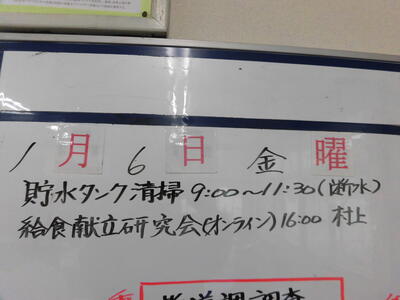 1月6日 金曜
貯水タンク清掃 9:00～11:30(断水)
給食献立研究会(オンライン) 16:00 村上